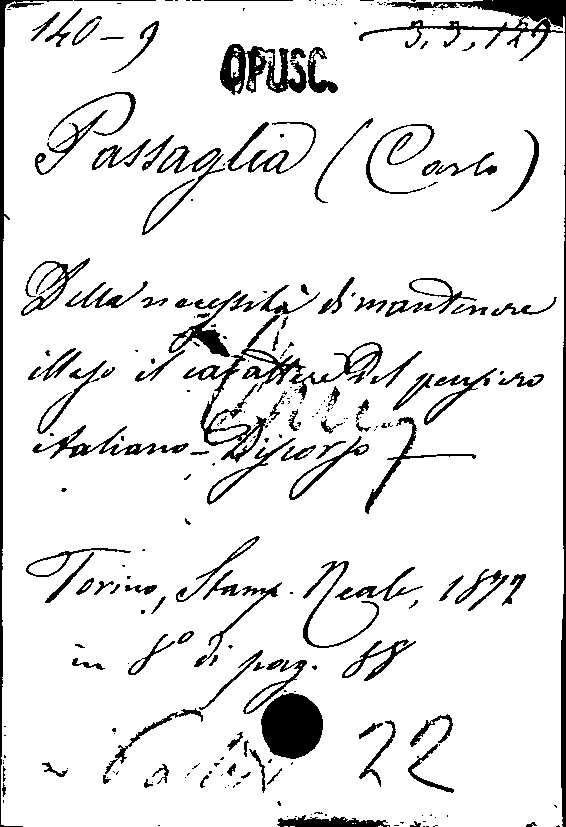 140-9 3.3.129
OPUSC.
Passaglia (Carlo)
Della necessità di mantenere
illeso il carattere del pensiero
italiano - Discorso
Torino, Stamp. Reale, 1872
in 8° di pag. 88
22